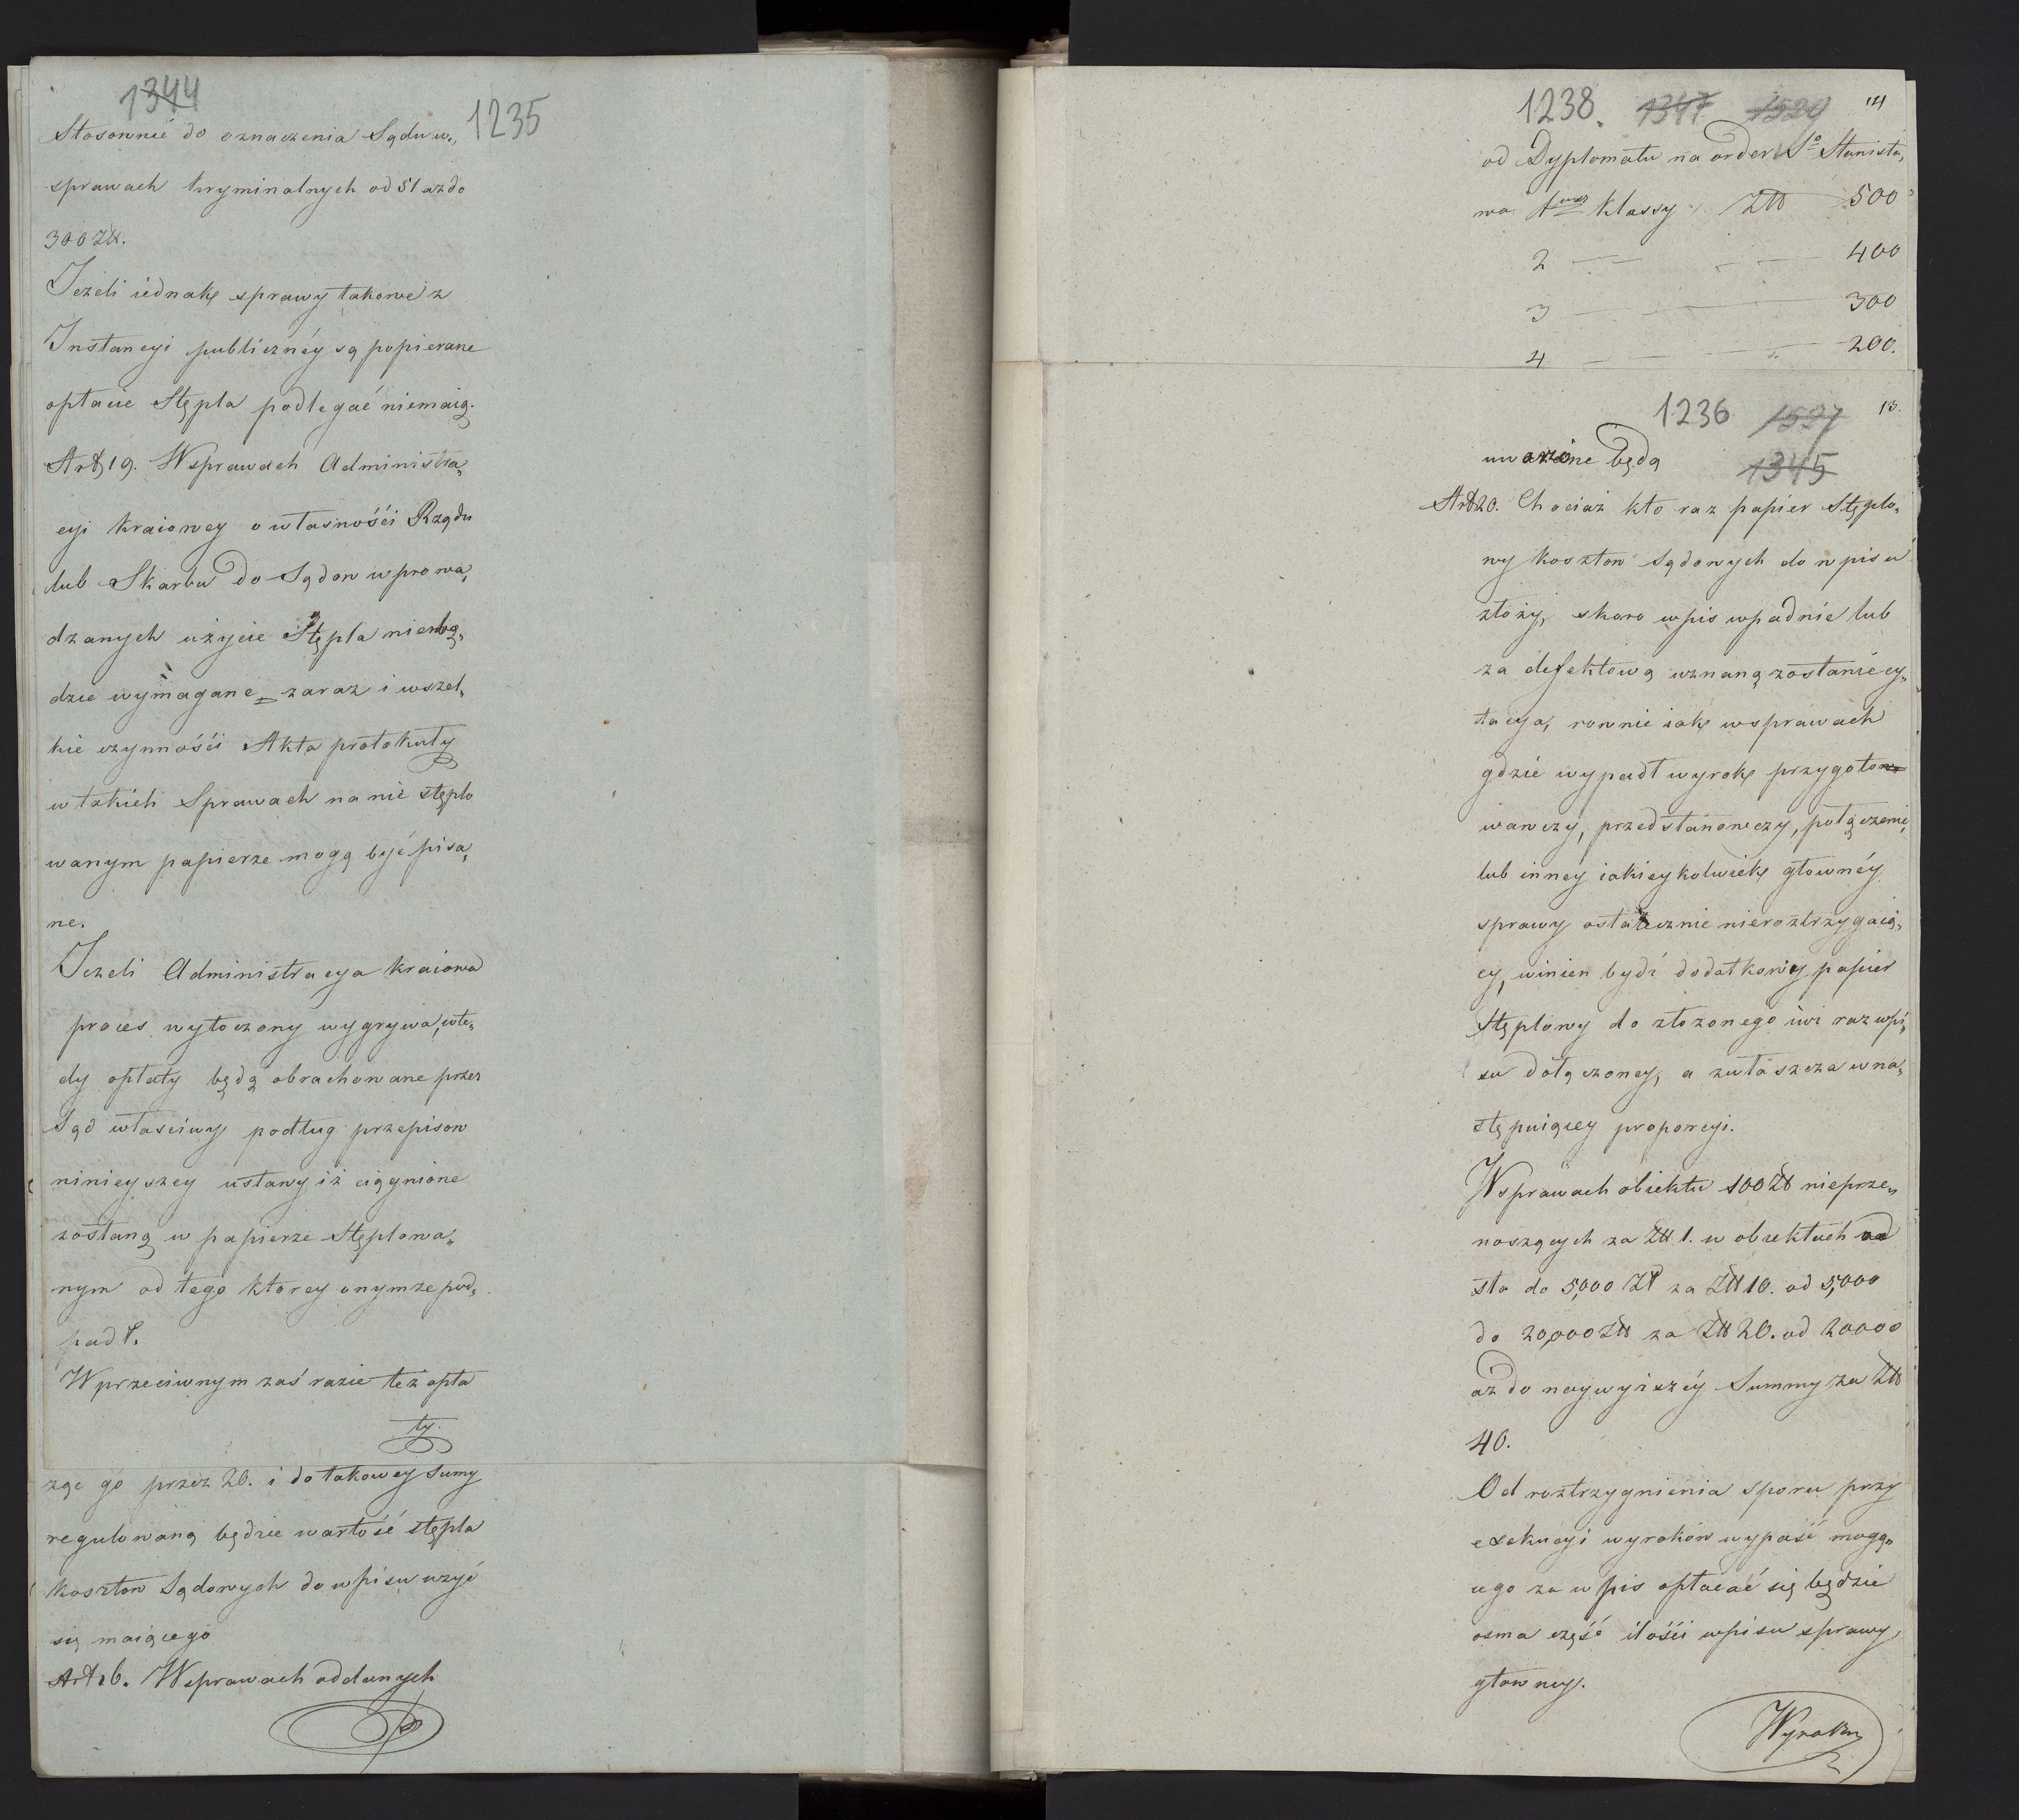 1344
1235
Stosownie do oznaczenia Sądu w„
sprawach kryminalnych od 51 az do
300 Złł.
Jeżeli iednak sprawy takowe z
Instancyi publiczney są popierane
opłacie Stępla podlegać niemaią.
Art 19. W sprawach Administra„
cyi kraiowey o własności Rządu
lub Skarbu do Sądow wprowa„
dzanych użycie Stępla niebę„
dzie wymagane zaraz i wszel„
kie czynności Akta protokuły
w takich Sprawach na nie stęplo
wanym papierze mogą być pisa„
ne.
Jeżeli Administracya kraiowa
proces wytoczony wygrywa, wte„
dy opłaty będą obrachowane przez
Sąd własciwy podług przepisow
ninieyszey ustawy iż ciągnione
zostaną w papierze Stęplowa„
nym od tego ktorey onymże pod„
padł.
W przeciwnym zaś razie też opła
ty.
zge go przez 20. i do takowey Sumy
regulowaną będzie wartość stępla
kosztow Sądowych do wpisu uzyć
się maiącego
Art 16. W sprawach oddanych
1238. 1347 1529 14
od Dyplomatu na order Sº Stanisła„
wa 1wszej klassy Złł 500
2 — — 400
3 — — 300
4 — — 200.
1236 1527 13.
1345
uwarzone będą
Art 20. Chociaż kto raz papier Stęplo„
wy kosztow Sądowych do wpisu
złoży, skoro wpis wpadnie lub
za defektową uznaną zostanie cy„
tacya, rownie iak w sprawach
gdzie wypadł wyrok przygoto
wawczy, przedstanowczy, połączenie,
lub inney iakieykolwiek głowney
sprawy ostatecznie nieroztrzygaią„
cy, winien bydź dodatkowy papier
Stęplowy do złozonego iuż raz wpi„
su dołączoney, a zwłaszcza w na„
stępuiącey proporcyi.
W sprawach obiektu 100 Zł nieprze„
noszących za Złł 1. w obiektach od
sta do 5,000 Zł za Złł 10. od 5,000
do 20,000 Złł za Złł 20. od 20000
az do naywyiszéy Summy za Złł
40.
Od roztrzygnienia sporu przy
exekucyi wyrokow wypaść mogą„
cego za wpis opłacać się będzie
osma część ilości wpisu sprawy
głowney.
Wyroku